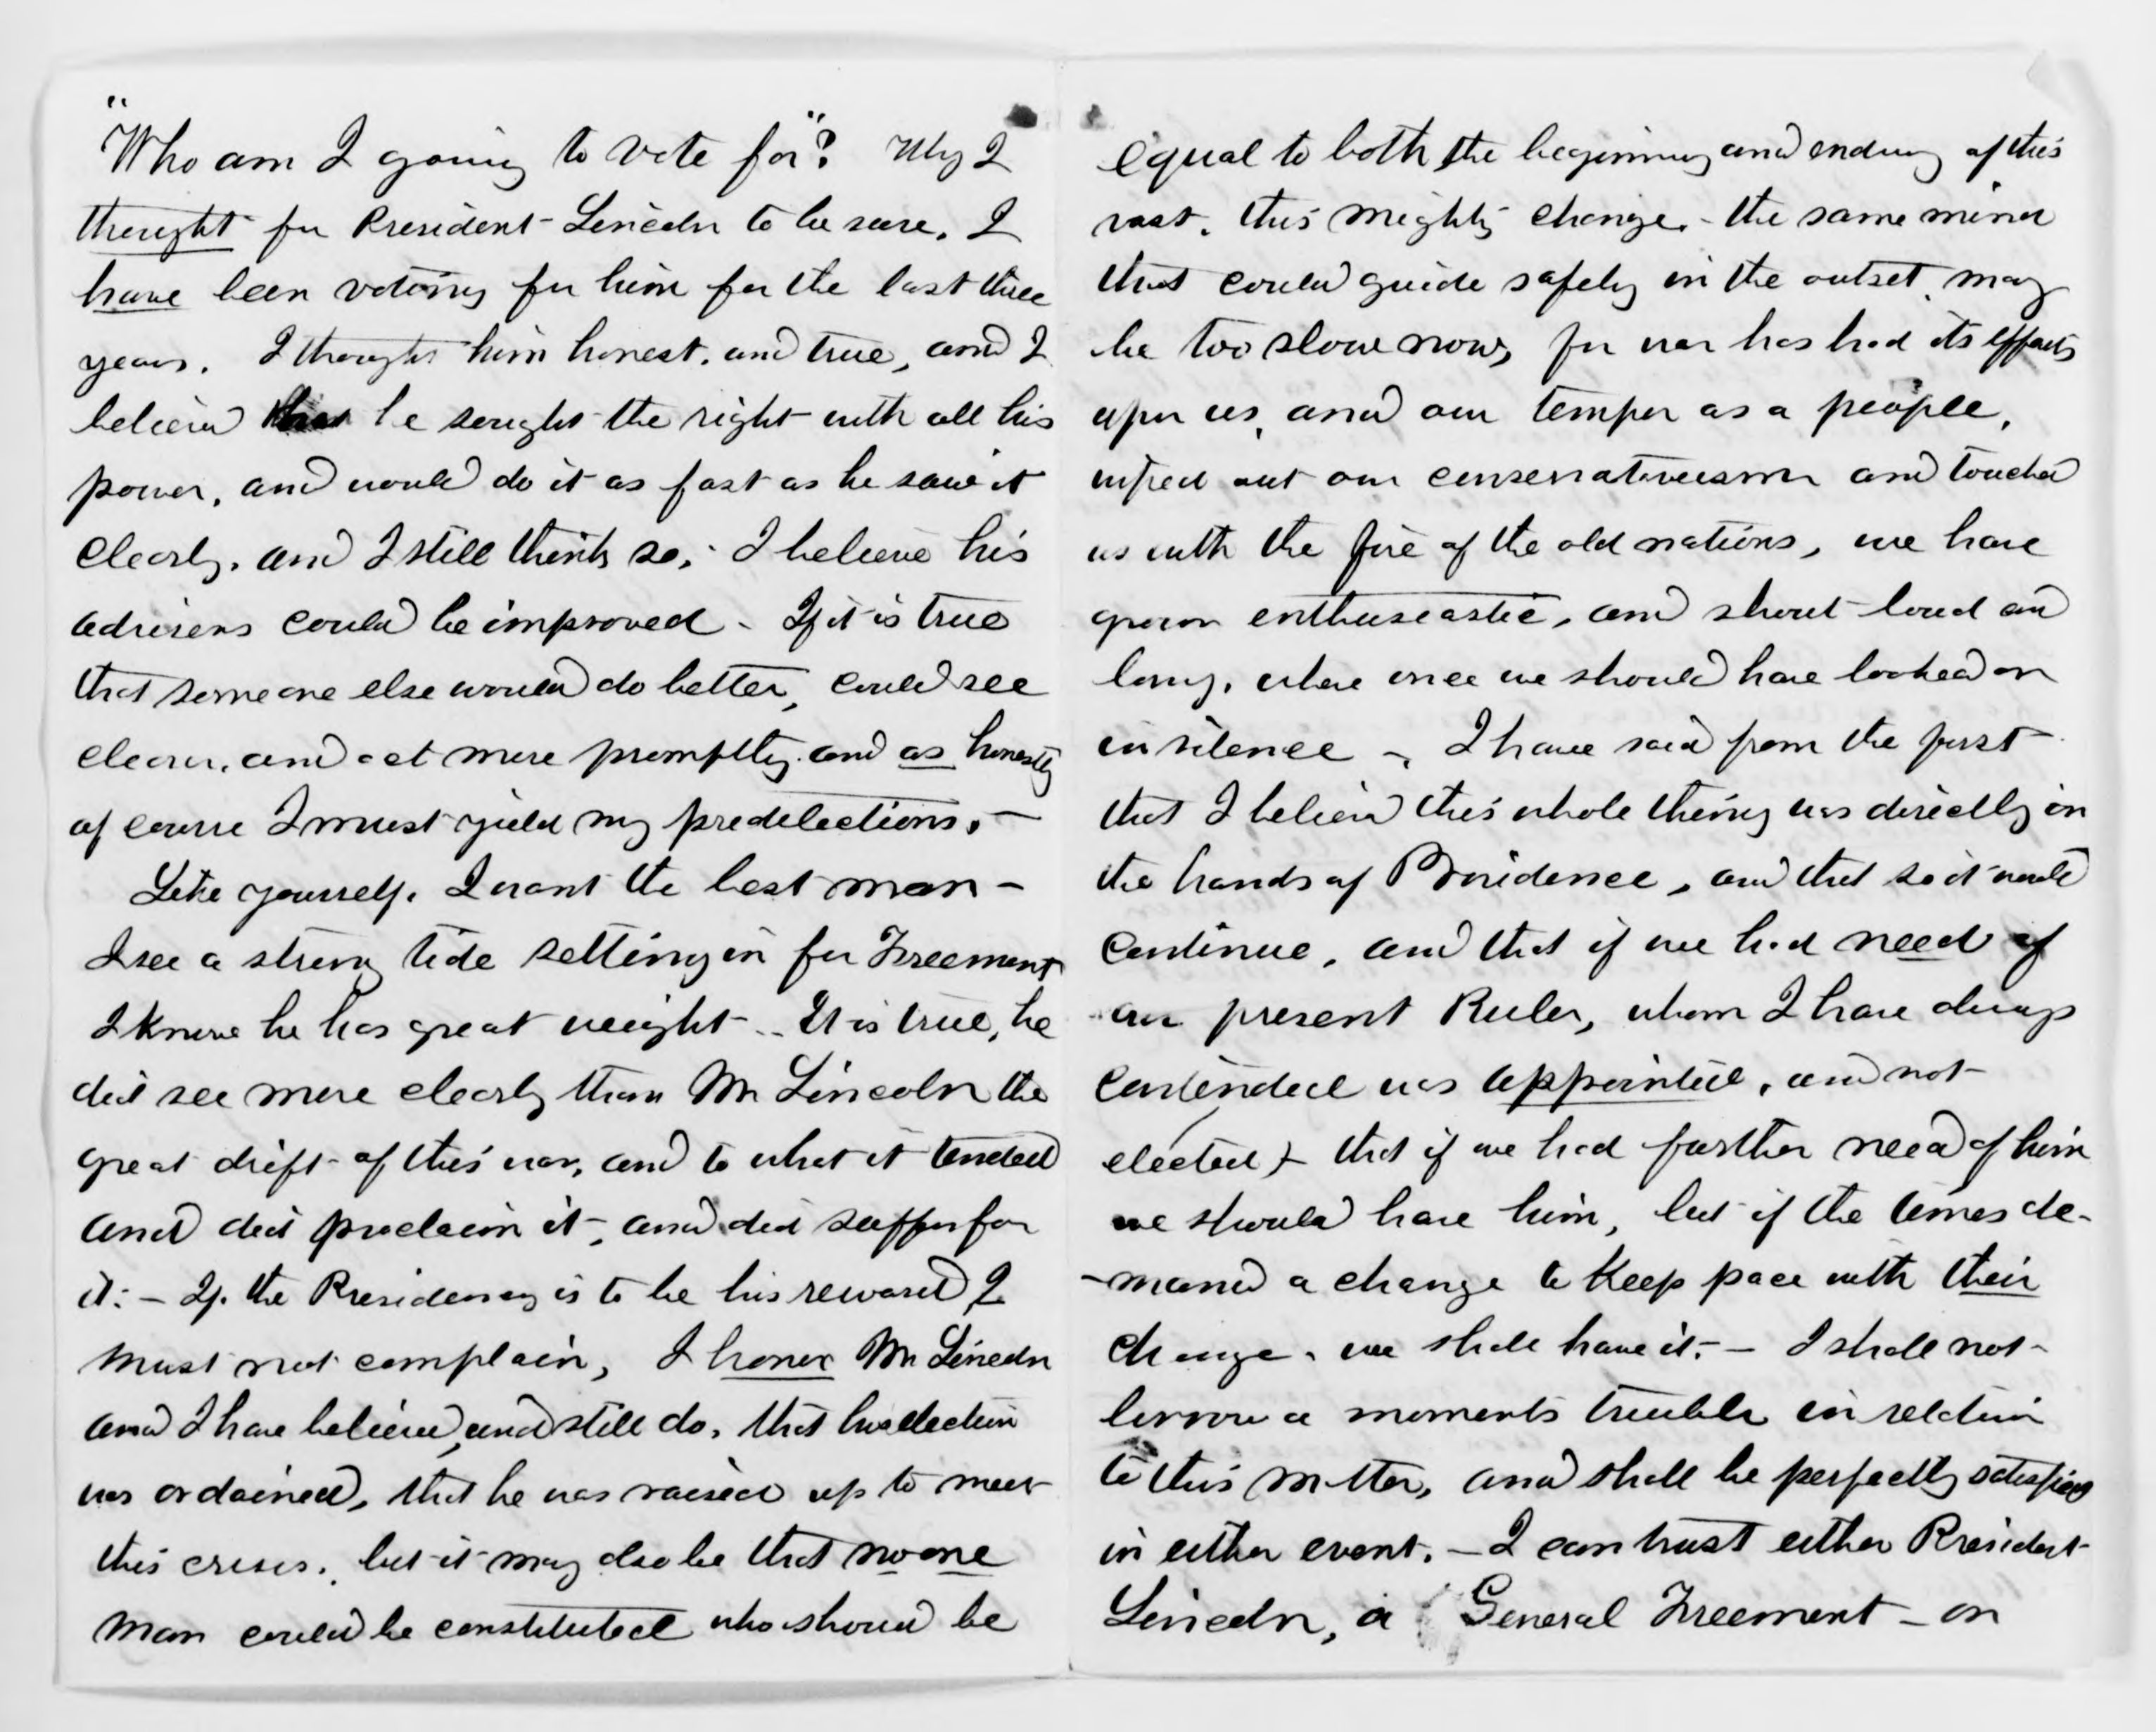 "Who am I going to vote for"? Why I
thought for President Lincoln to be sure. I
have been voting for him for the last three
years. I thought him honest, and true, and I
believed that he sought the right with all his
power, and would do it as fast as he saw it
clearly, and I still think so. I believe his
advisers could be improved - If it is true
that someone else would do better, could see
clearer, and act more promptly, and as honestly
of course I must yield my predelections. -
Like yourself, I want the best man -
I see a strong tide setting in for Freemont
I know he has great weight - It is true, he
did see more clearly than Mr Lincoln the
great drift of this war, and to what it tended
and did proclaim it, and did suffer for
it: - If the Presidency is to be his reward I
must not complain, I honor Mr Lincoln
and I have believed, and still do, that his election
was ordained, that he was raised up to meet
this crisis, but it may also be that no one
man could be constituted who should be
equal to both the beginning and ending of this
vast, this mighty change, - the same mind
that could guide safely in the outset, may
be too slow now, for war has had its effects
upon us, and our temper as a people,
wiped out our conservativeism and touched
us with the fire of the old nations, we have
grown enthuseastic, and shout loud and
long, where once we should have looked on
in silence -, I have said from the first
that I believed this whole thing was directly in
the hands of Providence, and that so it would
continue, and that if we had need of
our present Ruler, whom I have always
contended was appointed, and not
elected, that if we had further need of him
we should have him, but if the times de-
-mand a change to keep pace with their
change, we shall have it. - I shall not
borrow a moments trouble in relation
to this matter, and shall be perfectly satisfied
in either event. - I can trust either President
Lincoln, or General Freemont - on